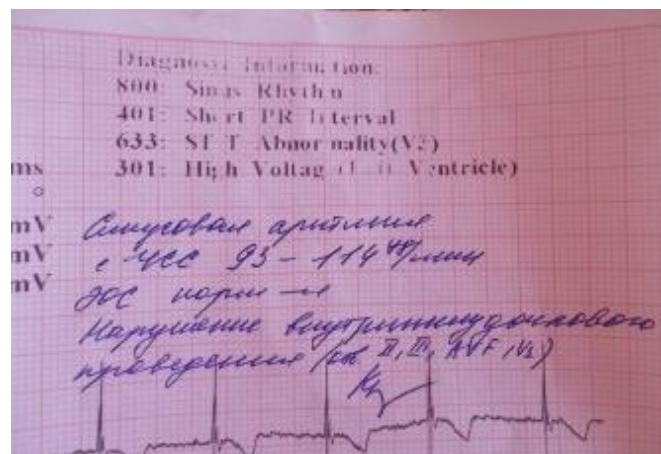 Diagnosis Information:
800: Sinus Rhythm
401: Short PR Interval
633: ST-T Abnormality(V3)
ms 301: High Voltage (Left Ventricle)
mV Синусовая аритмия
mV с ЧСС 93 - 114 уд/мин
mV ЭОС норм-я
Нарушение внутрижелудочкового
проведения (отв. II, III, AVF, V1)